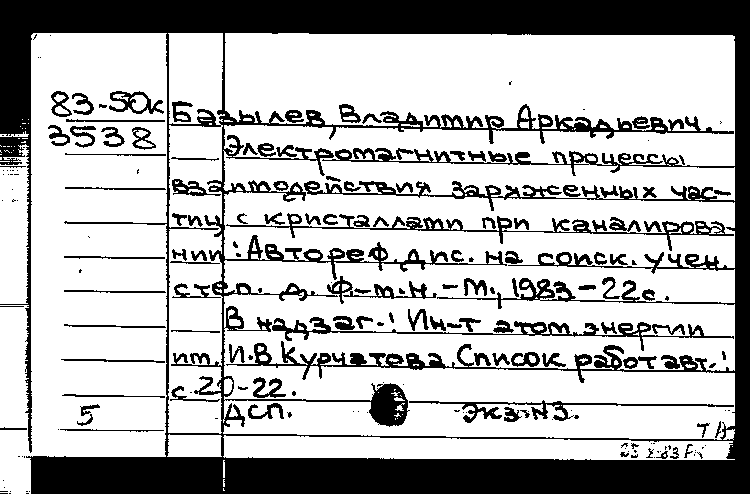 83-50к Базылев, Владимир Аркадьевич.
3538 Электромагнитные процессы
взаимодействия заряженных час-
тиц с кристаллами при каналирова-
нии : Автореф. дис. на соиск. учен.
степ. д. ф.-м.н. - М., 1983 - 22с.
В надзаг.: Ин-т атом. энергии
им. И.В. Курчатова. Список работ авт.:
с. 20-22.
5 ДСП. Экз. N3.
83